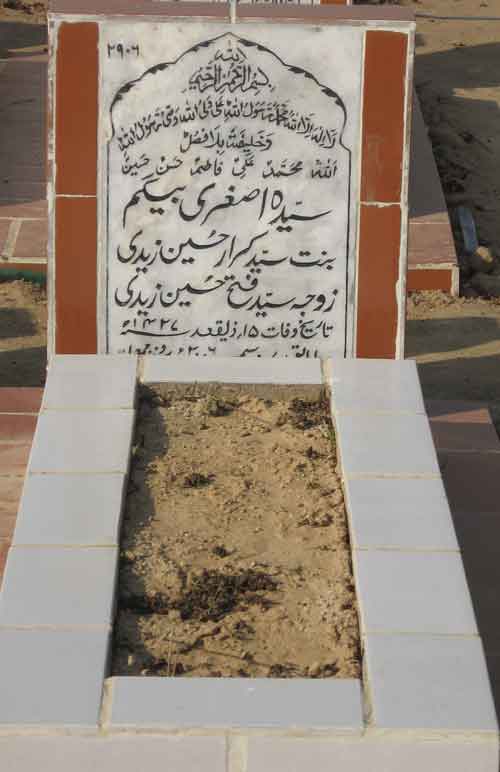 ۲۹۰۶
یا اللہ
بسم اللہ الرحمن الرحیم
لا الہ الا اللہ محمد رسول اللہ علی ولی اللہ وصی رسول اللہ
وخلیفتہ بلا فصل
اللہ محمد علی فاطمہ حسن حسین
سیدہ اصغری بیگم
بنت سید کرار حسین زیدی
زوجہ سید فتح حسین زیدی
تاریخ وفات ۱۵ ذیقعد ۱۴۲۷ھ